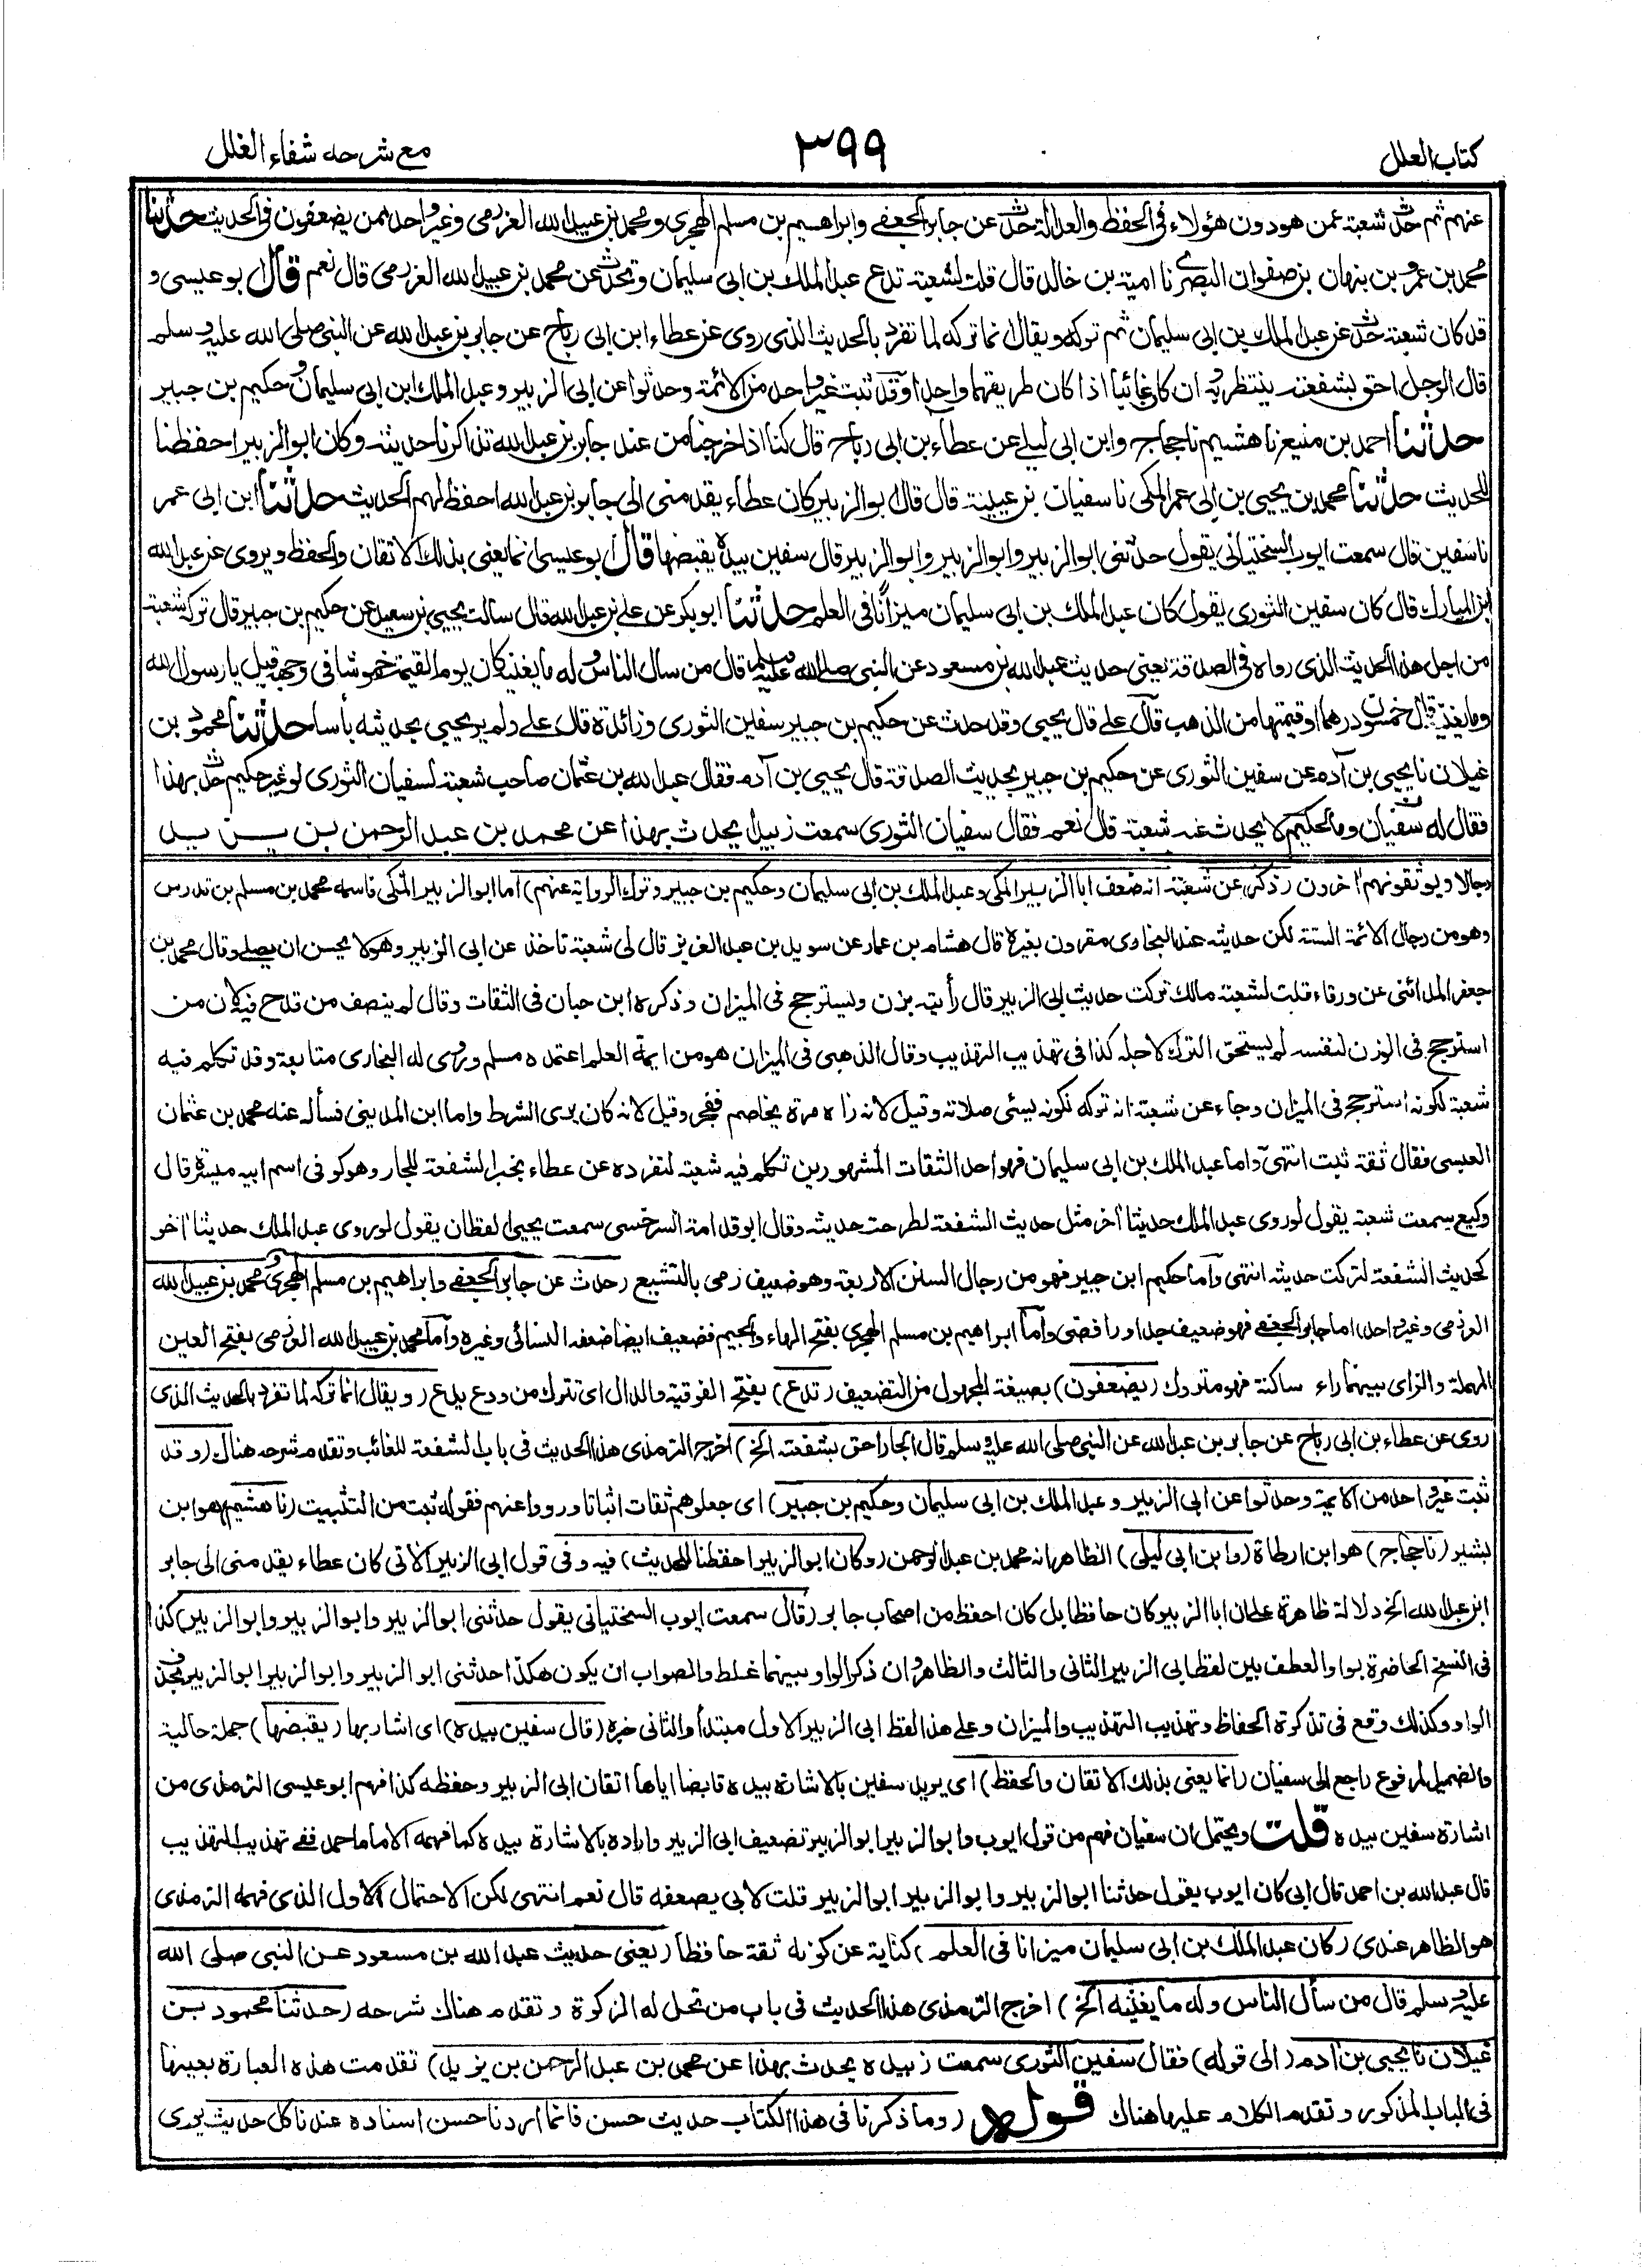 كتاب العلل
٣٩٩
مع شرحه شفاء الغلل
عنهم ثم حدث شعبة عمن هو دون هؤلاء فى الحفظ والعدالة حدث عن جابر الجعفى وابراهيم بن مسلم الهجرى ومحمد بن عبيد الله العرزمى وغير واحد ممن يضعفون فى الحديث حدثنا
محمد بن عمرو بن نبهان بن صفوان البصرى نا امية بن خالد قال قلت لشعبة تدع عبد الملك بن ابى سليمان وتحدث عن محمد بن عبيد الله العرزمى قال نعم قال ابو عيسى و
قد كان شعبة حدث عن عبد الملك بن ابى سليمان ثم تركه ويقال انما تركه لما تفرد بالحديث الذى روى عن عطاء ابن ابى رباح عن جابر بن عبد الله عن النبى صلى الله عليه وسلم
قال الرجل احق بشفعته ينتظر به ان كان غائبا اذا كان طريقهما واحدا وقد ثبت غير واحد من الائمة وحدثوا عن ابى الزبير وعبد الملك ابن ابى سليمان وحكيم بن جبير
حدثنا احمد بن منيع نا هشيم نا حجاج وابن ابى ليلى عن عطاء بن ابى رباح قال كنا اذا خرجنا من عند جابر بن عبد الله تذاكرنا حديثه وكان ابو الزبير احفظنا
للحديث حدثنا محمد بن يحيى بن ابى عمر المكى نا سفيان بن عيينة قال قال ابو الزبير كان عطاء يقدمنى الى جابر بن عبد الله احفظ لهم الحديث حدثنا ابن ابى عمر
نا سفين قال سمعت ايوب السختيانى يقول حدثنى ابو الزبير وابو الزبير وابو الزبير قال سفين بيده يقبضها قال ابو عيسى انما يعنى بذلك الاتقان والحفظ ويروى عن عبد الله
ابن المبارك قال كان سفين الثورى يقول كان عبد الملك بن ابى سليمان ميزانا فى العلم حدثنا ابو بكر عن على بن عبد الله قال سالت يحيى بن سعيد عن حكيم بن جبير قال تركه شعبة
من اجل هذا الحديث الذى رواه فى الصدقة يعنى حديث عبد الله بن مسعود عن النبى صلى الله عليه وسلم قال من سال الناس وله ما يغنيه كان يوم القيمة خموشا فى وجهه قيل يا رسول الله
وما يغنيه قال خمسون درهما او قيمتها من الذهب قال على قال يحيى وقد حدث عن حكيم بن جبير سفين الثورى وزائدة قال على ولم ير يحيى بحديثه بأسا حدثنا محمود بن
غيلان نا يحيى بن آدم عن سفين الثورى عن حكيم بن جبير بحديث الصدقة قال يحيى بن آدم فقال عبد الله بن عثمان صاحب شعبة لسفيان الثورى لو غير حكيم حدث بهذا
فقال له سفيان وما لحكيم لا يحدث عنه شعبة قال نعم فقال سفيان الثورى سمعت زبيدا يحدث بهذا عن محمد بن عبد الرحمن بن يزيد
رجالا ويوثقونهم اخرون (ذكر عن شعبة انه ضعف ابا الزبير المكى وعبد الملك بن ابى سليمان وحكيم بن جبير وترك الرواية عنهم) اما ابو الزبير المكى فاسمه محمد بن مسلم بن تدرس
وهو من رجال الائمة الستة لكن حديثه عند البخارى مقرون بغيره قال هشام بن عمار عن سويد بن عبد العزيز قال لى شعبة تاخذ عن ابى الزبير وهو لا يحسن ان يصلى وقال محمد بن
جعفر المدائنى عن ورقاء قلت لشعبة مالك تركت حديث ابى الزبير قال رأيته يزن ويسترجح فى الميزان وذكره ابن حبان فى الثقات وقال لم ينصف من قدح فيه لان من
استرجح فى الوزن لنفسه لم يستحق الترك لاجله كذا فى تهذيب التهذيب وقال الذهبى فى الميزان هو من ايمة العلم اعتمده مسلم وروى له البخارى متابعة وقد تكلم فيه
شعبة لكونه استرجح فى الميزان وجاء عن شعبة انه تركه لكونه يسئى صلاته وقيل لانه رآه مرة يخاصم ففجر وقيل لانه كان يرى الشرط واما ابن المدينى فسأله عنه محمد بن عثمان
العبسى فقال ثقة ثبت انتهى واما عبد الملك بن ابى سليمان فهو احد الثقات المشهورين تكلم فيه شعبة لتفرده عن عطاء بخبر الشفعة للجار وهو كوفى اسم ابيه ميسرة قال
وكيع سمعت شعبة يقول لو روى عبد الملك حديثا آخر مثل حديث الشفعة لطرحت حديثه وقال ابو قدامة السرخسى سمعت يحيى القطان يقول لو روى عبد الملك حديثا اخر
كحديث الشفعة لتركت حديثه انتهى واما حكيم ابن جبير فهو من رجال السنن الاربعة وهو ضعيف رمى بالتشيع (حدث عن جابر الجعفى وابراهيم بن مسلم الهجرى ومحمد بن عبيد الله
العرزمى وغير واحد) اما جابر الجعفى فهو ضعيف جدا ورافضى واما ابراهيم بن مسلم الهجرى بفتح الهاء والجيم فضعيف ايضا ضعفه النسائى وغيره واما محمد بن عبيد الله العرزمى بفتح العين
المهملة والزاى بينهما راء ساكنة فهو متروك (يضعفون) بصيغة المجهول من التضعيف (تدع) بفتح الفوقية والدال اى تترك من ودع يدع (ويقال انما تركه لما تفرد بالحديث الذى
روى عن عطاء بن ابى رباح عن جابر بن عبد الله عن النبى صلى الله عليه وسلم قال الجار احق بشفعته الخ) اخرج الترمذى هذا الحديث فى باب الشفعة للغائب وتقدم شرحه هناك (وقد
ثبت غير واحد من الايمة وحدثوا عن ابى الزبير وعبد الملك بن ابى سليمان وحكيم بن جبير) اى جعلوهم ثقات اثباتا ورووا عنهم فقوله ثبت من التثبيت (نا هشيم) هو ابن
بشير (نا حجاج) هو ابن ارطاة (وابن ابى ليلى) الظاهر انه محمد بن عبد الرحمن (وكان ابو الزبير احفظنا للحديث) فيه وفى قول ابى الزبير الاتى كان عطاء يقدمنى الى جابر
ابن عبد الله الخ دلالة ظاهرة على ان ابا الزبير كان حافظا بل كان احفظ من اصحاب جابر (قال سمعت ايوب السختيانى يقول حدثنى ابو الزبير وابو الزبير وابو الزبير) كذا
فى النسخ الحاضرة بواو العطف بين لفظ ابى الزبير الثانى والثالث والظاهر ان ذكر الواو بينهما غلط والصواب ان يكون هكذا حدثنى ابو الزبير وابو الزبير ابو الزبير بحذف
الواو وكذلك وقع فى تذكرة الحفاظ وتهذيب التهذيب والميزان وعلى هذا لفظ ابى الزبير الاول مبتدأ والثانى خبره (قال سفين بيده) اى اشار بها (يقبضها) جملة حالية
والضمير المرفوع راجع الى سفيان (انما يعنى بذلك الاتقان والحفظ) اى يريد سفين بالاشارة بيده قابضا اياها اتقان ابى الزبير وحفظه كذا فهم ابو عيسى الترمذى من
اشارة سفين بيده قلت ويحتمل ان سفيان فهم من قول ايوب وابو الزبير ابو الزبير تضعيف ابى الزبير واراده بالاشارة بيده كما فهمه الامام احمد ففى تهذيب التهذيب
قال عبد الله بن احمد قال ابى كان ايوب يقول حدثنا ابو الزبير وابو الزبير ابو الزبير قلت لابى يضعفه قال نعم انتهى لكن الاحتمال الاول الذى فهمه الترمذى
هو الظاهر عندى (كان عبد الملك بن ابى سليمان ميزانا فى العلم) كناية عن كونه ثقة حافظا (يعنى حديث عبد الله بن مسعود عن النبى صلى الله
عليه وسلم قال من سأل الناس وله ما يغنيه الخ) اخرج الترمذى هذا الحديث فى باب من تحل له الزكوة وتقدم هناك شرحه (حدثنا محمود بن
غيلان نا يحيى بن ادم (الى قوله) فقال سفين الثورى سمعت زبيده يحدث بهذا عن محمد بن عبد الرحمن بن يزيد) تقدمت هذه العبارة بعينها
فى الباب المذكور وتقدم الكلام عليها هناك قوله (وما ذكرنا فى هذا الكتاب حديث حسن فانما اردنا حسن اسناده عندنا كل حديث يروى